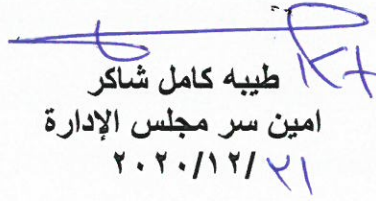 طيبه كامل شاكر
امين سر مجلس الإدارة
٢٠٢٠/١٢/٣١